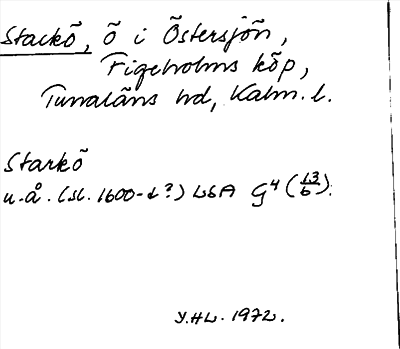 Stackö, ö i Östersjön,
Figeholms köp,
Tunaläns hd, Kalm. l.
Starkö
u. å. (sl. 1600-t?) LSA G4 (13/6).
Y.HL. 1972.